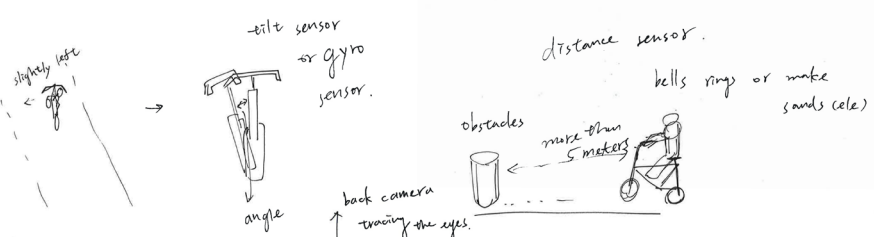 slightly left
tilt sensor
or gyro
sensor.
angle
back camera
tracing the eyes.
distance sensor.
bells rings or make
sands (ele)
obstacles
more than
5 meters